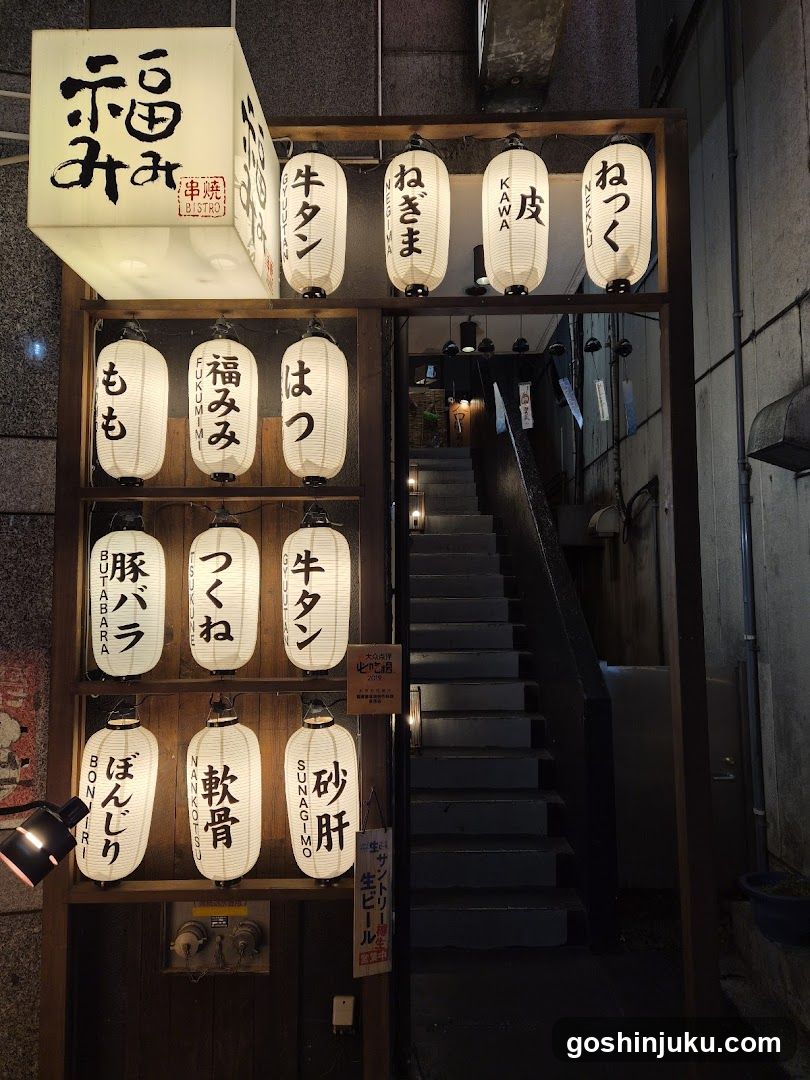 福みみ
串焼
BISTRO
福みみ
牛タン
GYUUTAN
ねぎま
NEGIMA
皮
KAWA
ねっく
NEKKU
もも
福みみ
FUKUMIMI
はつ
豚バラ
BUTABARA
つくね
TSUKUNE
牛タン
GYUUTAN
大众点评
必吃榜
2019
ぼんじり
BONJIRI
軟骨
NANKOTSU
砂肝
SUNAGIMO
サントリー樽生
生ビール
営業中
goshinjuku.com